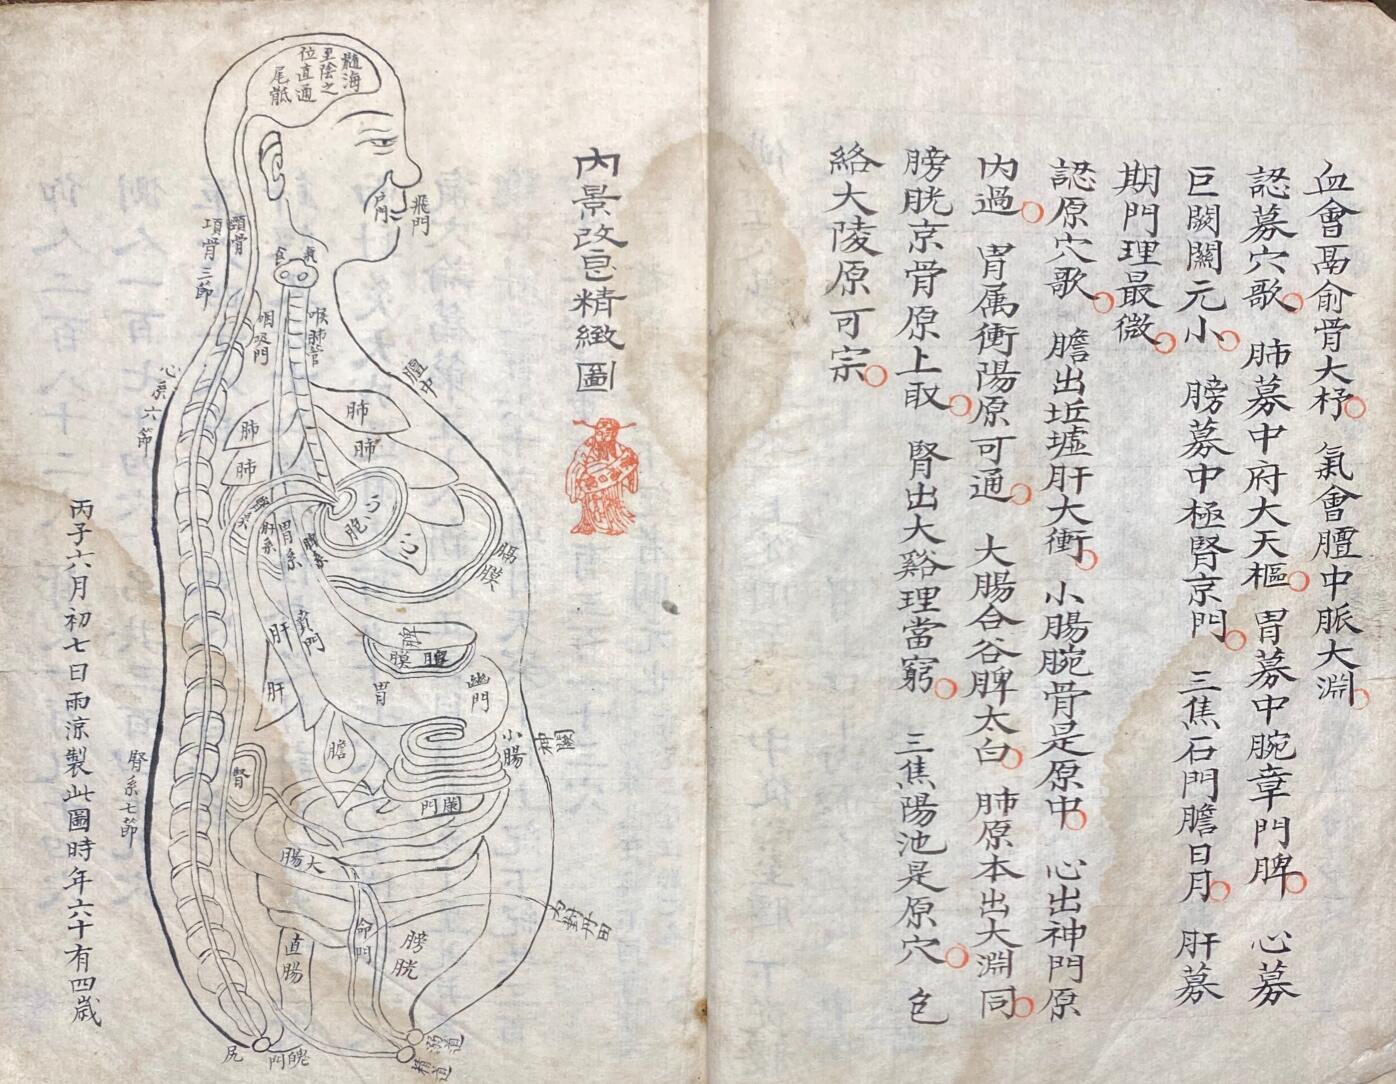 血會鬲俞骨大杼 氣會膻中脈大淵
認募穴歌 肺募中府大天樞 胃募中腕章門脾 心募
巨闕關元小 膀募中極腎京門 三焦石門膽日月 肝募
期門理最微
認原穴歌 膽出坵墟肝大衝 小腸腕骨是原中 心出神門原
内過 胃属衝陽原可通 大腸合谷脾太白 肺原本出大淵同
膀胱京骨原上取 腎出大谿理當窮 三焦陽池是原穴 包
絡大陵原可宗
内景改正精緻圖
髓海
至陰之
位直通
尾骶
飛門
户門
頭骨
項骨三節
食
氣
咽
門
喉肺管
膻中
心系六節
肺
肺
肺
肺
心
胞
肝系
胃系
脾系
膈膜
肝
賁門
肝
脾
膜
胃
幽門
膽
小腸
神闕
腎
腎系七節
闌門
大腸
直腸
命門
膀胱
丹田
尻
魄門
溺道
精道
丙子六月初七日雨涼製此圖時年六十有四歲